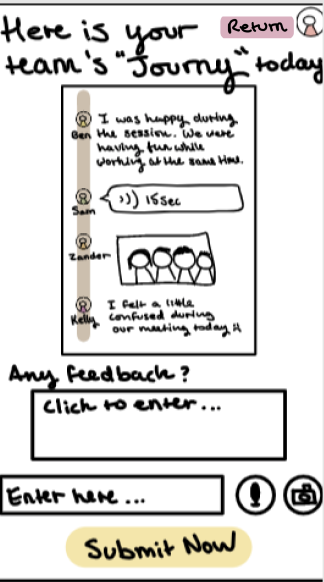 Here is your
Return
team's "Journy" today
Ben
I was happy during
the session. We were
having fun while
working at the same time.
Sam
15 sec
Zander
Kelly
I felt a little
confused during
our meeting today
Any feedback?
Click to enter...
Enter here ...
Submit Now